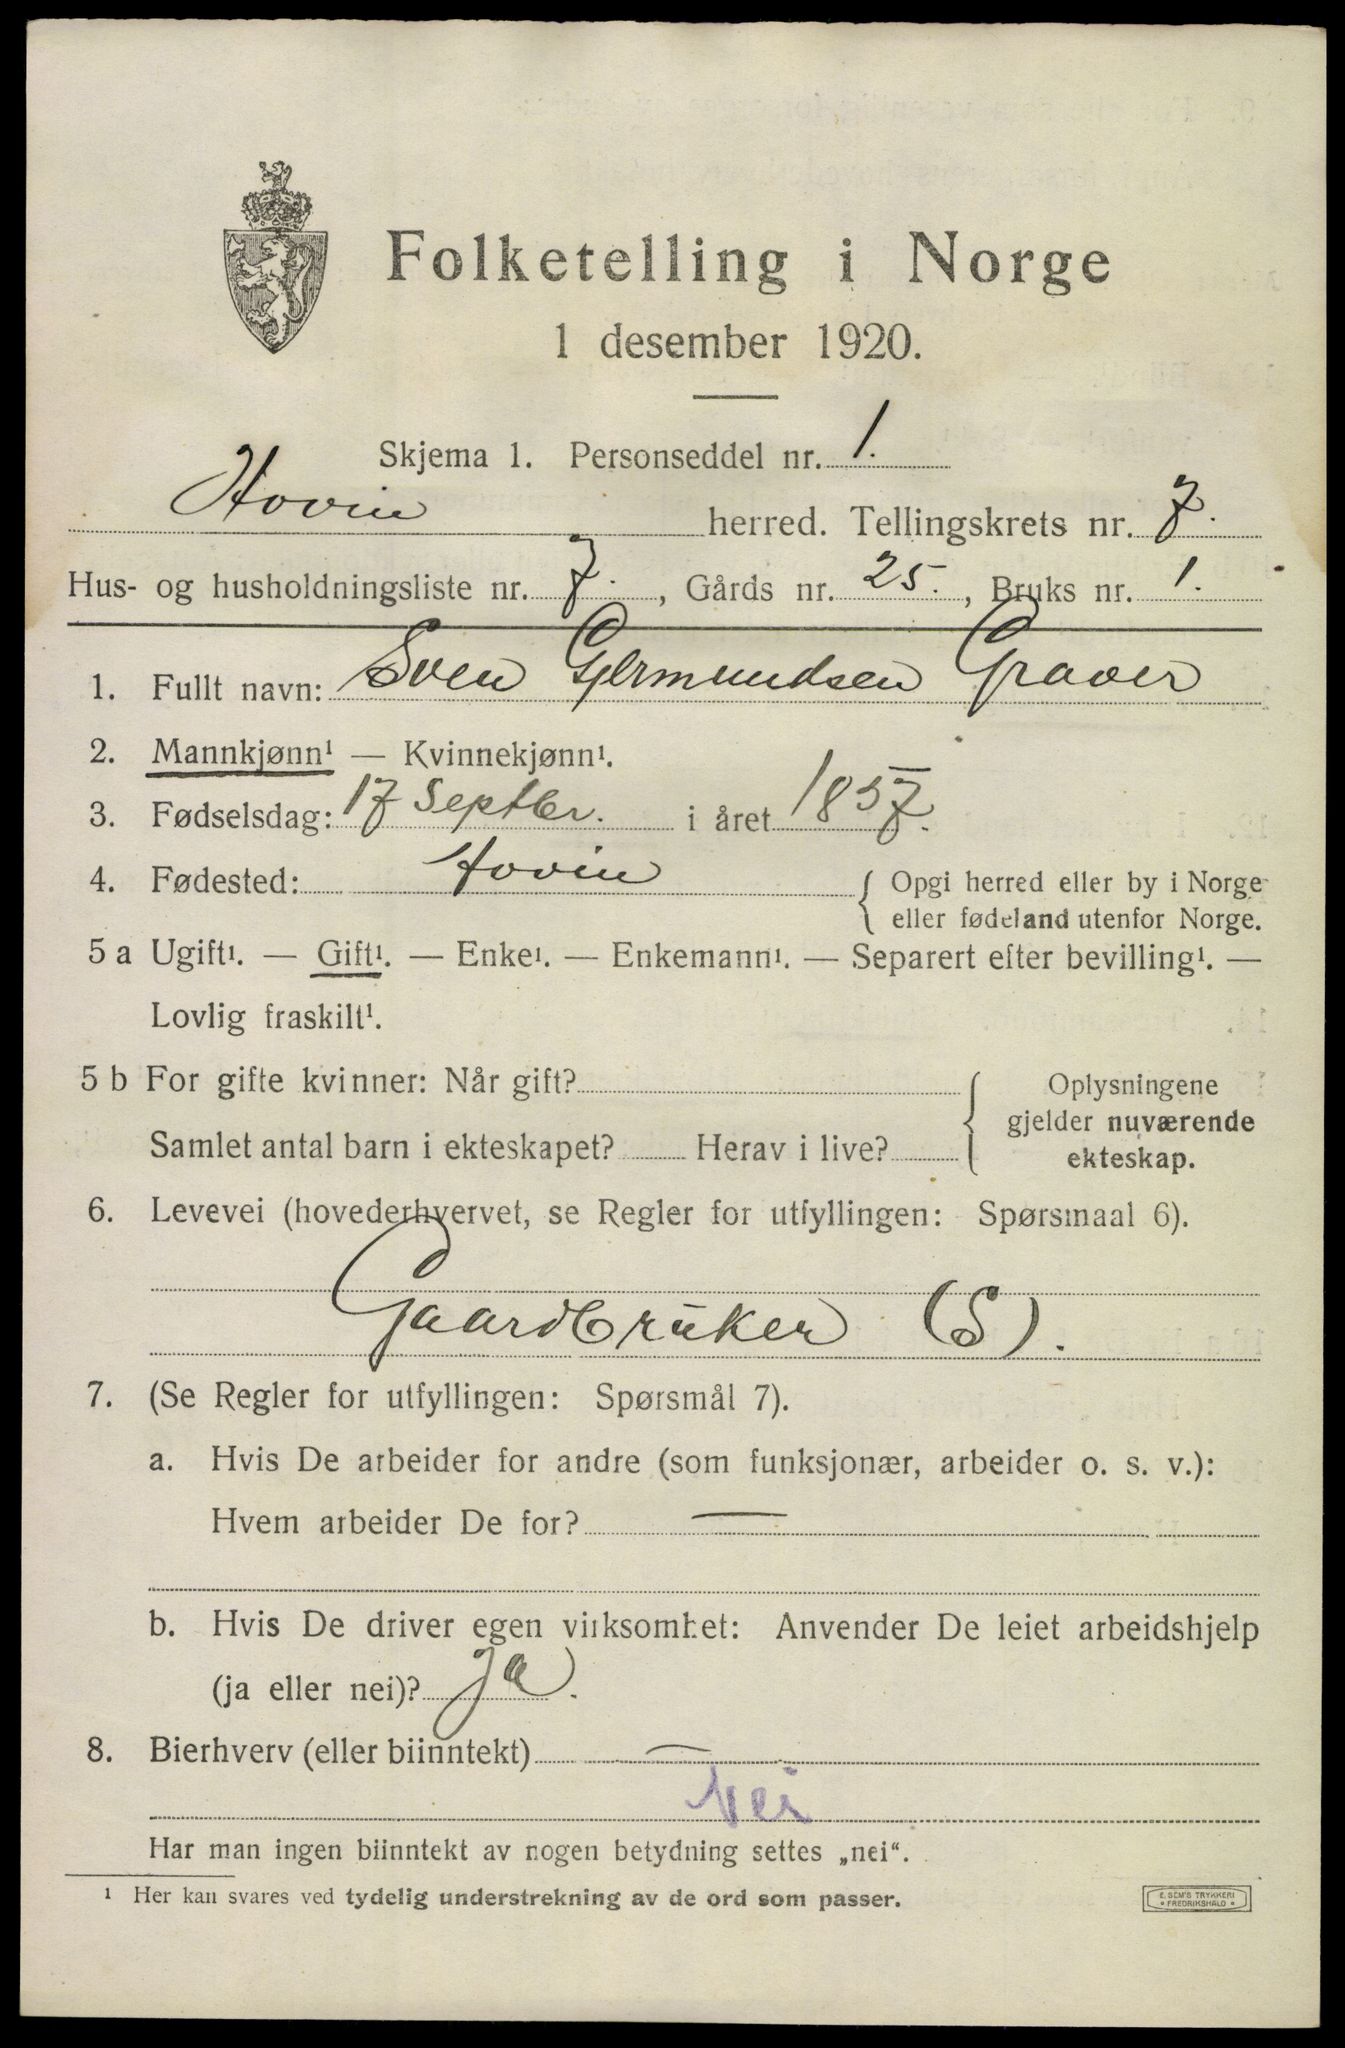 Folketelling i Norge
1 desember 1920.
Skjema 1. Personseddel nr. 1.
Hovin herred. Tellingskrets nr. 7.
Hus- og husholdningsliste nr. 7., Gårds nr. 25., Bruks nr. 1.
1. Fullt navn: Sven Germundsen Graver
2. Mannkjønn¹ — Kvinnekjønn¹.
3. Fødselsdag: 17 Septbr. i året 1857.
4. Fødested: Hovin { Opgi herred eller by i Norge
eller fødeland utenfor Norge.
5 a Ugift¹. — Gift¹. — Enke¹. — Enkemann¹. — Separert efter bevilling¹. —
Lovlig fraskilt¹.
5 b For gifte kvinner: Når gift? { Oplysningene
gjelder nuværende
Samlet antal barn i ekteskapet? Herav i live?
ekteskap.
6. Levevei (hovederhvervet, se Regler for utfyllingen: Spørsmaal 6).
Gaardbruker (S).
7. (Se Regler for utfyllingen: Spørsmål 7).
a. Hvis De arbeider for andre (som funksjonær, arbeider o. s. v.):
Hvem arbeider De for? —
b. Hvis De driver egen virksomhet: Anvender De leiet arbeidshjelp
(ja eller nei)? ja.
8. Bierhverv (eller biinntekt) —
Nei
Har man ingen biinntekt av nogen betydning settes „nei“.
¹ Her kan svares ved tydelig understrekning av de ord som passer.
E. SEM'S TRYKKERI
• FREDRIKSHALD •